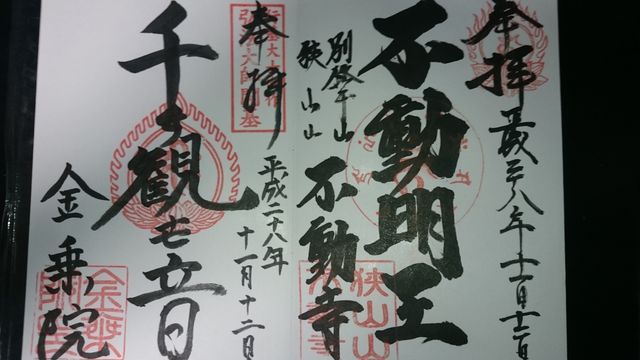 奉拝
平成二八年十一月十二日
不動明王
別格本山
狭山山
不動寺
狭山山
奉拝
平成二十八年
十一月十二日
千手観世音
金乗院